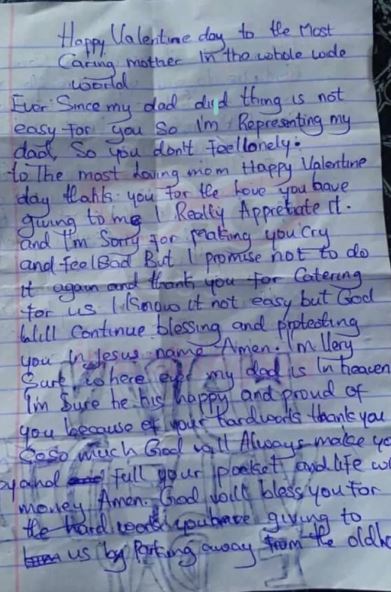 Happy Valentine day to the Most
Caring mother In the whole wide
world
Ever Since my dad died thing is not
easy for you So I'm Representing my
dad, So you don't feel lonely.
to The most loving mom Happy Valentine
day thanks you for the love you have
giving to me, I Really Appretiate it.
and I'm Sorry for Making you Cry
and feel Bad But I promise not to do
it again and thank you for Catering
for us I know it not easy but God
Will Continue blessing and protesting
you In Jesus name Amen. I'm Very
Sure where ever my dad is In heaven
I'm Sure he his happy and proud of
you because of your hardwork thank you
so much God will Always make yo
and full your pocket and life w
money Amen. God will bless you for
the hard work you have giving to
us by Parking away from the old ho